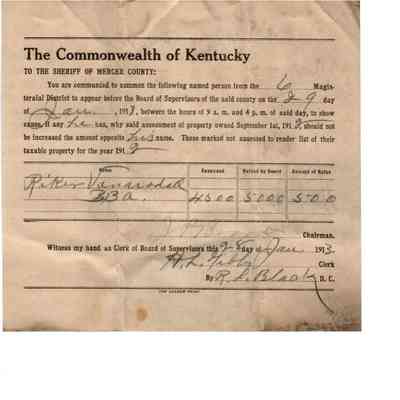 The Commonwealth of Kentucky
TO THE SHERIFF OF MERCER COUNTY:
You are commanded to summon the following named person from the 6 Magis-
terial District to appear before the Board of Supervisors of the said county on the 29 day
of Jan, 1913, between the hours of 9 a. m. and 4 p. m. of said day, to show
cause, if any he has, why said assessment of property owned September 1st, 1912, should not
be increased the amount opposite his name. Those marked not assessed to render list of their
taxable property for the year 1912
Name Assessed Raised by Board Amount of Raise
Riker Vanarsdall
BBA. 4500 5000 500
Chairman.
Witness my hand as Clerk of Board of Supervisors this 28 day of Jan 1913.
Clerk
By R. L. Black, D. C.